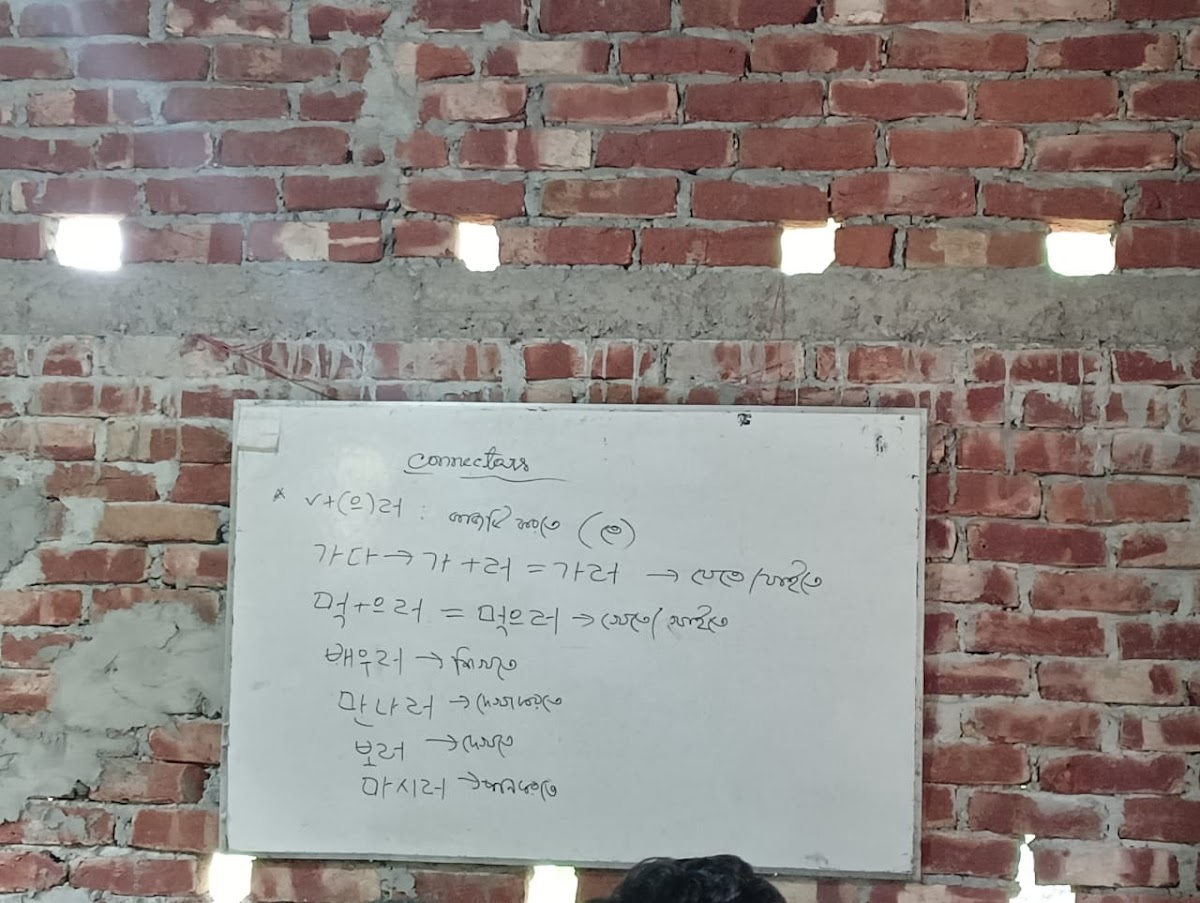 Connectors
* V+(으)러 : কাজটি করতে (তে)
가다 → 가 + 러 = 가러 → যেতে/যাইতে
먹+으러 = 먹으러 → খেতে/খাইতে
배우러 → শিখতে
만나러 → দেখা করতে
보러 → দেখতে
마시러 → পান করতে